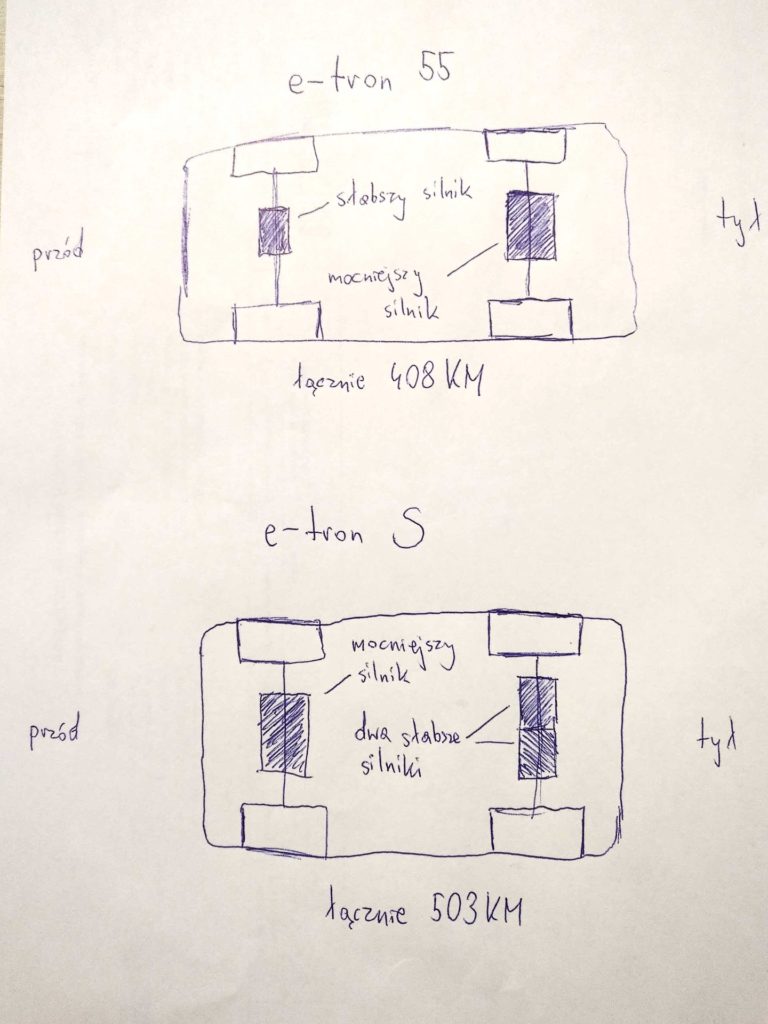 e-tron 55
słabszy silnik
przód
tył
mocniejszy
silnik
łącznie 408 KM
e-tron S
mocniejszy
silnik
przód
dwa słabsze
silniki
tył
łącznie 503 KM